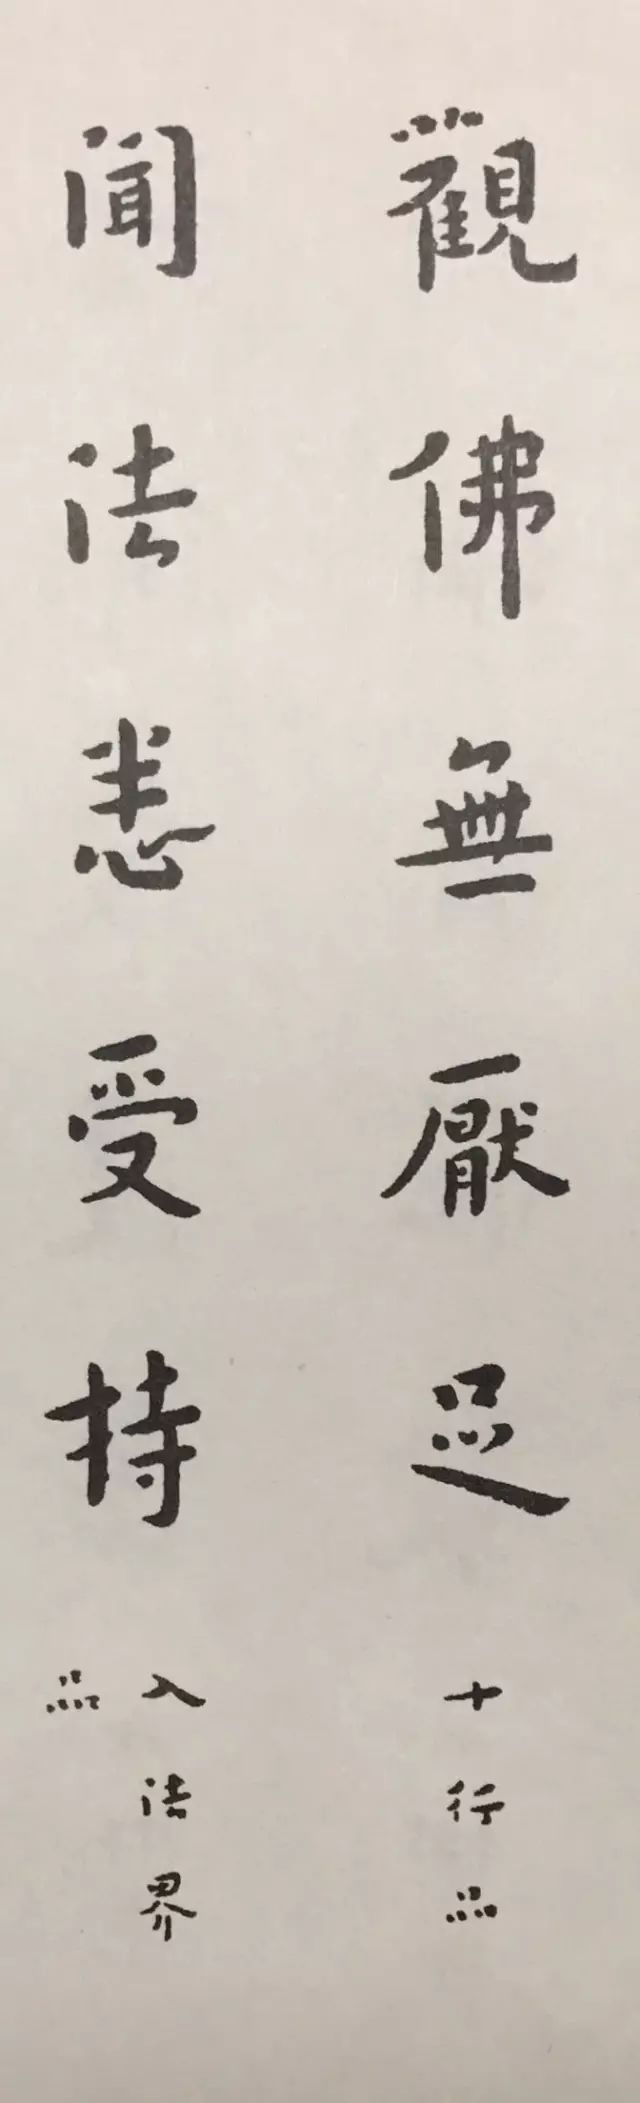 觀佛無厭足
十行品
聞法悉受持
入法界
品